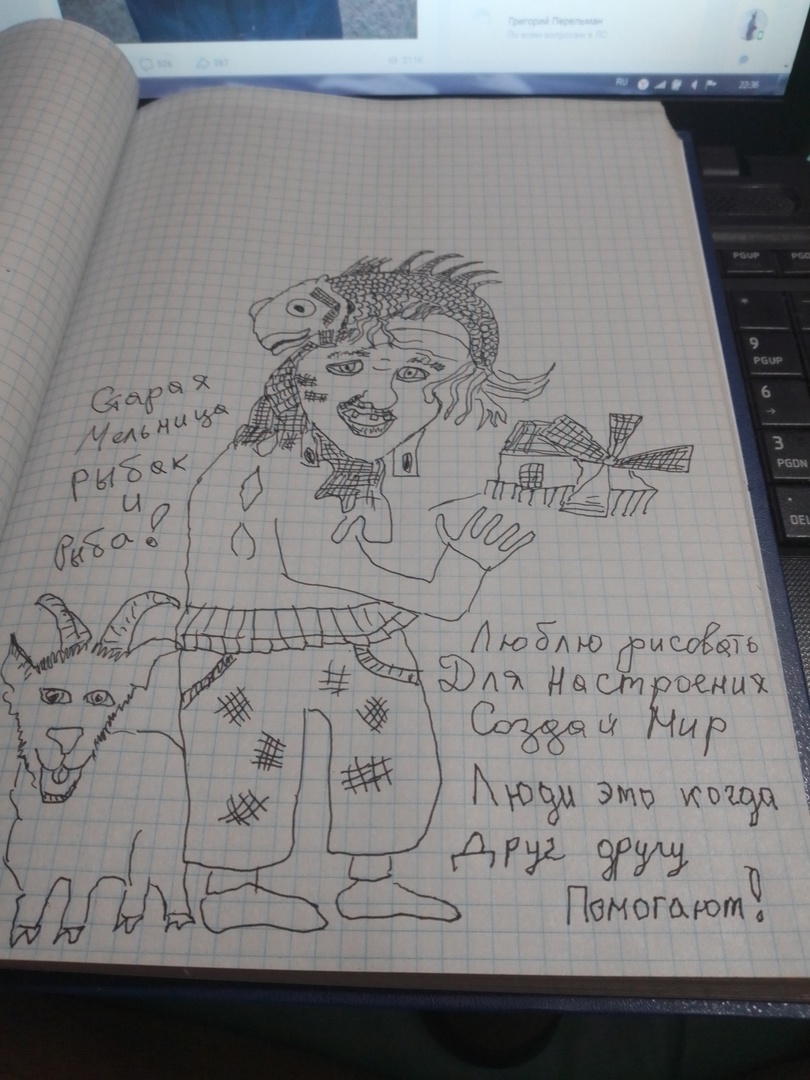 Григорий Перельман
По всем вопросам в ЛС
RU
22:36
PGUP
9
PGUP
6
3
PGDN
Старая
Мельница
рыбак
и
Рыба!
Люблю рисовать
Для Настроения
Создай Мир
Люди это когда
Друг другу
Помогают!